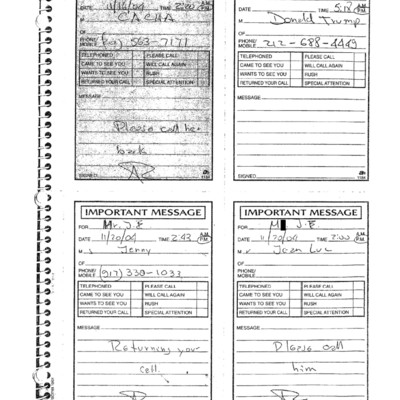 DATE 11/16/04 TIME 2:00 A.M. P.M.
M CACHA
OF
PHONE/
MOBILE 563-7171
TELEPHONED PLEASE CALL
CAME TO SEE YOU WILL CALL AGAIN
WANTS TO SEE YOU RUSH
RETURNED YOUR CALL SPECIAL ATTENTION
MESSAGE
Please call
back
SIGNED
DATE TIME P.M.
M Donald Trump
OF
PHONE/
MOBILE 212-688-4449
TELEPHONED PLEASE CALL
CAME TO SEE YOU WILL CALL AGAIN
WANTS TO SEE YOU RUSH
RETURNED YOUR CALL SPECIAL ATTENTION
MESSAGE
SIGNED
IMPORTANT MESSAGE
FOR Mr. J.E
DATE 11/20/04 TIME 2:43 A.M. P.M.
M Jenny
OF
PHONE/
MOBILE (917) 330-1033
TELEPHONED PLEASE CALL
CAME TO SEE YOU WILL CALL AGAIN
WANTS TO SEE YOU RUSH
RETURNED YOUR CALL SPECIAL ATTENTION
MESSAGE
Returning your
call.
IMPORTANT MESSAGE
FOR M J.E.
DATE 11/20/04 TIME 7:00 A.M. P.M.
M Jean Luc
OF
PHONE/
MOBILE
TELEPHONED PLEASE CALL
CAME TO SEE YOU WILL CALL AGAIN
WANTS TO SEE YOU RUSH
RETURNED YOUR CALL SPECIAL ATTENTION
MESSAGE
Please call
him